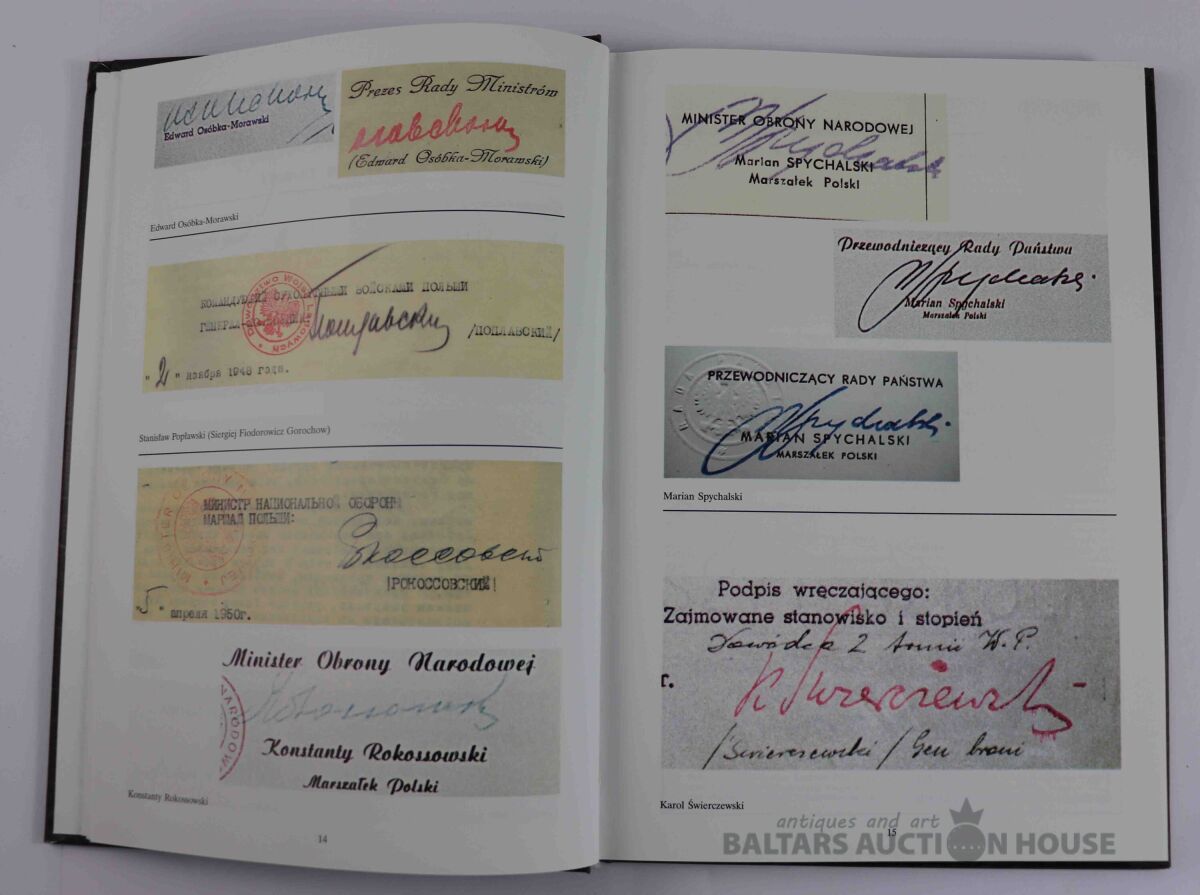 Edward Osóbka-Morawski
Prezes Rady Ministrów
(Edward Osóbka-Morawski)
Edward Osóbka-Morawski
КОМАНДУЮЩИЙ СУХОПУТНЫМИ ВОЙСКАМИ ПОЛЬШИ
ГЕНЕРАЛ- /ПОПЛАВСКИЙ/
"2" ноября 1948 года.
Stanisław Popławski (Siergiej Fiodorowicz Gorochow)
МИНИСТР НАЦИОНАЛЬНОЙ ОБОРОНЫ
МАРШАЛ ПОЛЬШИ:
Рокоссовский
/РОКОССОВСКИЙ/
"5" апреля 1950г.
Minister Obrony Narodowej
NARODOW
Konstanty Rokossowski
Marszałek Polski
Konstanty Rokossowski
14
MINISTER OBRONY NARODOWEJ
MSpychalski
Marian SPYCHALSKI
Marszałek Polski
Przewodniczący Rady Państwa
MSpychalski
Marian Spychalski
Marszałek Polski
PRZEWODNICZĄCY RADY PAŃSTWA
MSpychalski
MARIAN SPYCHALSKI
MARSZAŁEK POLSKI
Marian Spychalski
Podpis wręczającego:
Zajmowane stanowisko i stopień
Dowódca 2 Armii W.P.
r.
K Świerczewski
/Świerczewski/ Gen broni
Karol Świerczewski
15
antiques and art
BALTARS AUCTION HOUSE